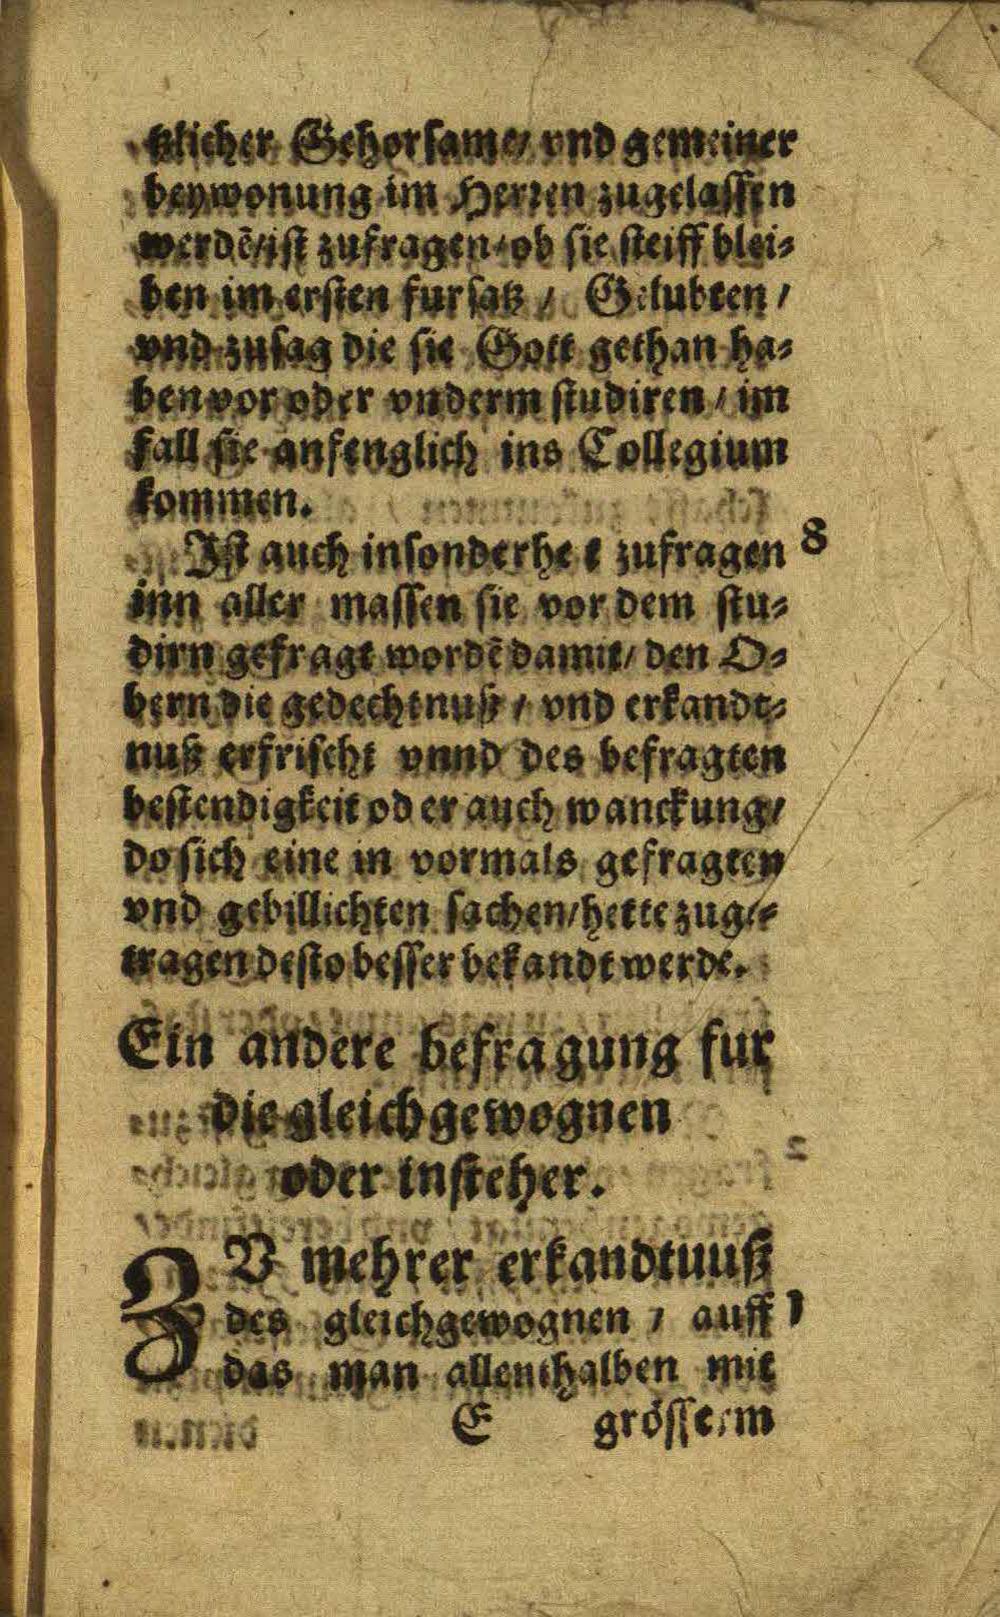 tzlicher Gehorsame/ vnd gemeiner
beywonung im Herren zugelassen
werdē/ist zufragen/ob sie steiff blei⸗
ben im ersten fursatz / Gelubten /
vnd zusag die sie Gott gethan ha⸗
ben vor oder vnderm studiren / im
fall sie anfenglich ins Collegium
kommen.
Ist auch insonderhe t zufragen 8
inn aller massen sie vor dem stu⸗
dirn gefragt wordē damit/ den O⸗
bern die gedechtnuß / vnd erkandt⸗
nuß erfrischt vnnd des befragten
bestendigkeit oder auch wanckung/
do sich eine in vormals gefragten
vnd gebillichten sachen/hette zuge⸗
tragen desto besser bekandt werde.
Ein andere befragung fur
die gleichgewognen
oder insteher.
ZV mehrer erkandtnuß
des gleichgewognen / auff 1
das man allenthalben mit
E grösserm